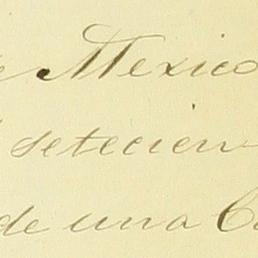 Mexico
setecien
de una C